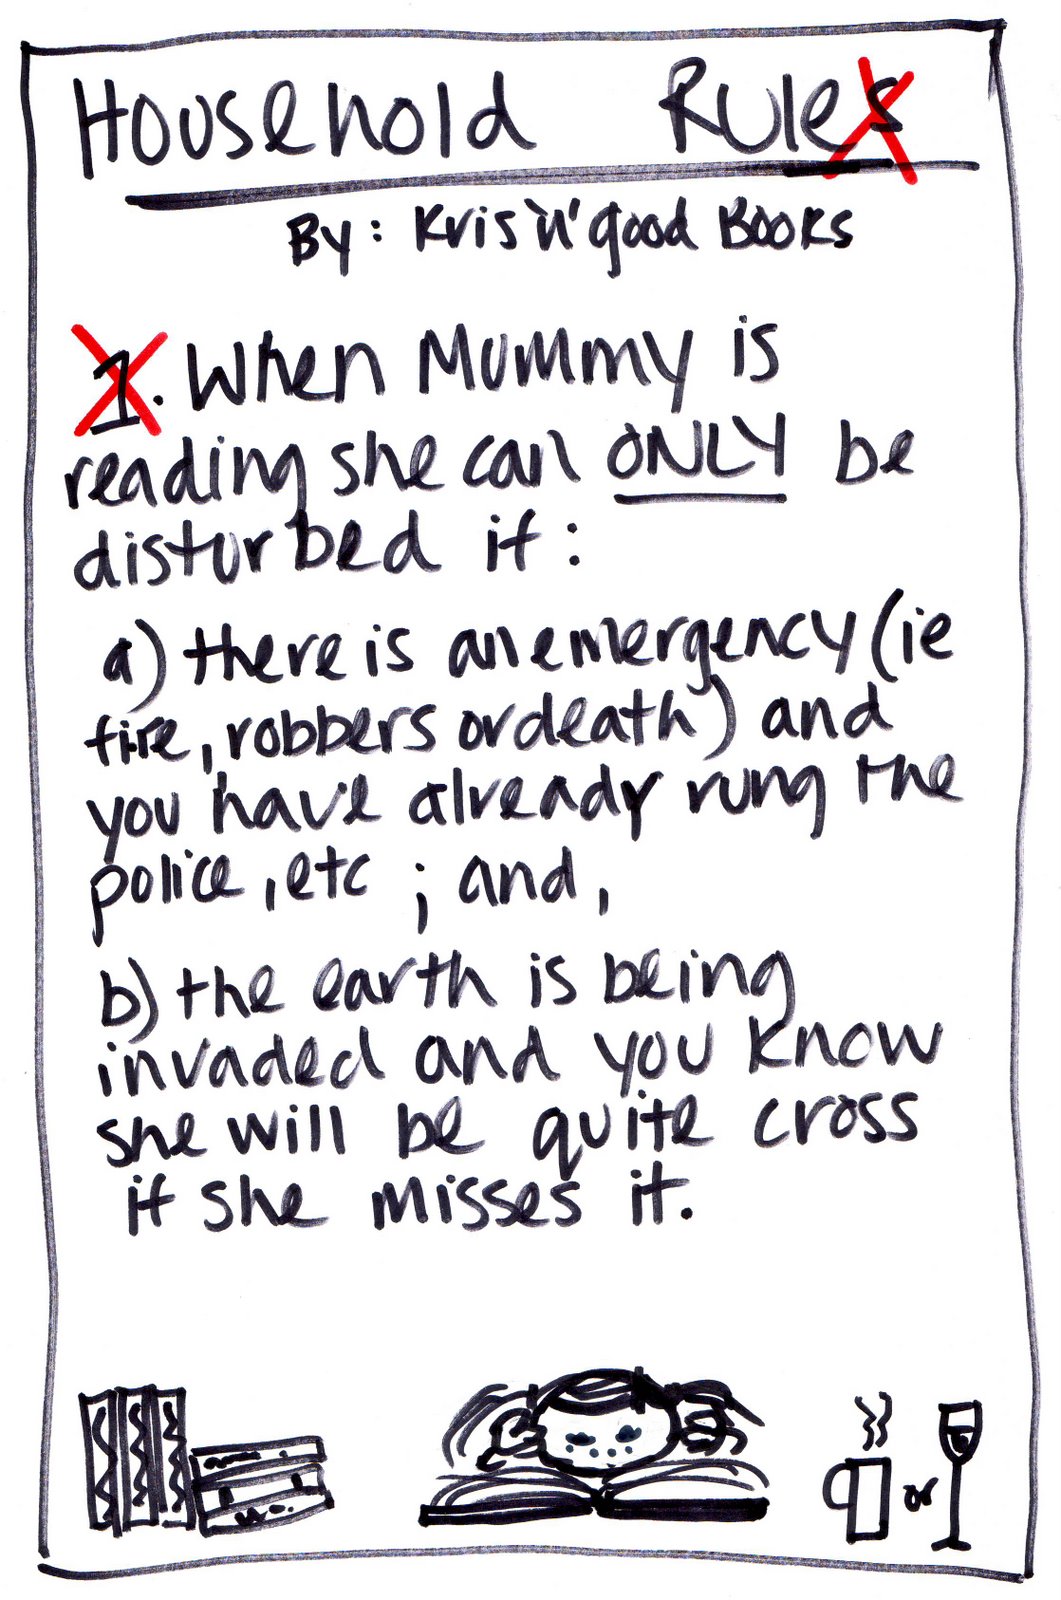 Household Rules
By: Kris 'n' good Books
1. When Mummy is
reading she can ONLY be
disturbed if:
a) there is an emergency (ie
fire, robbers or death) and
you have already rung the
police, etc ; and,
b) the earth is being
invaded and you know
she will be quite cross
if she misses it.
or